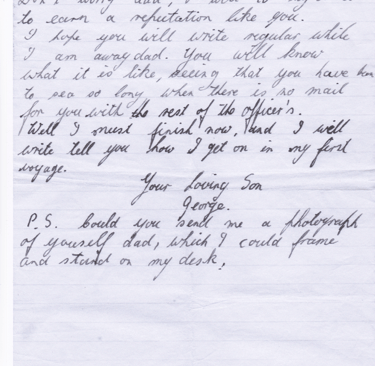 to earn a reputation like you.
I hope you will write regular while
I am away dad. You will know
what it is like, seeing that you have been
to sea so long when there is no mail
for you with the rest of the officer's.
Well I must finish now, and I will
write tell you how I get on in my first
voyage.
Your Loving Son
George.
P.S. Could you send me a photograph
of yourself dad, which I could frame
and stand on my desk,